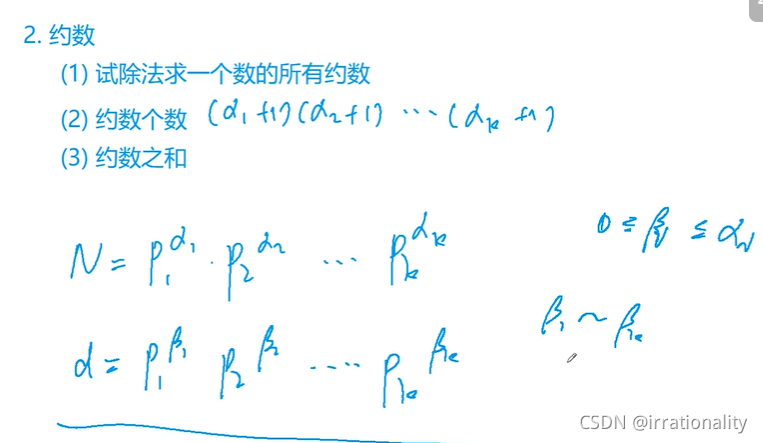 2. 约数
(1) 试除法求一个数的所有约数
(2) 约数个数 (α₁+1)(α₂+1) ⋯ (αₖ+1)
(3) 约数之和
N = p₁^α₁ · p₂^α₂ ⋯ pₖ^αₖ
0 ≤ βᵢ ≤ αᵢ
d = p₁^β₁ p₂^β₂ ⋯ pₖ^βₖ
β₁ ~ βₖ
CSDN @irrationality